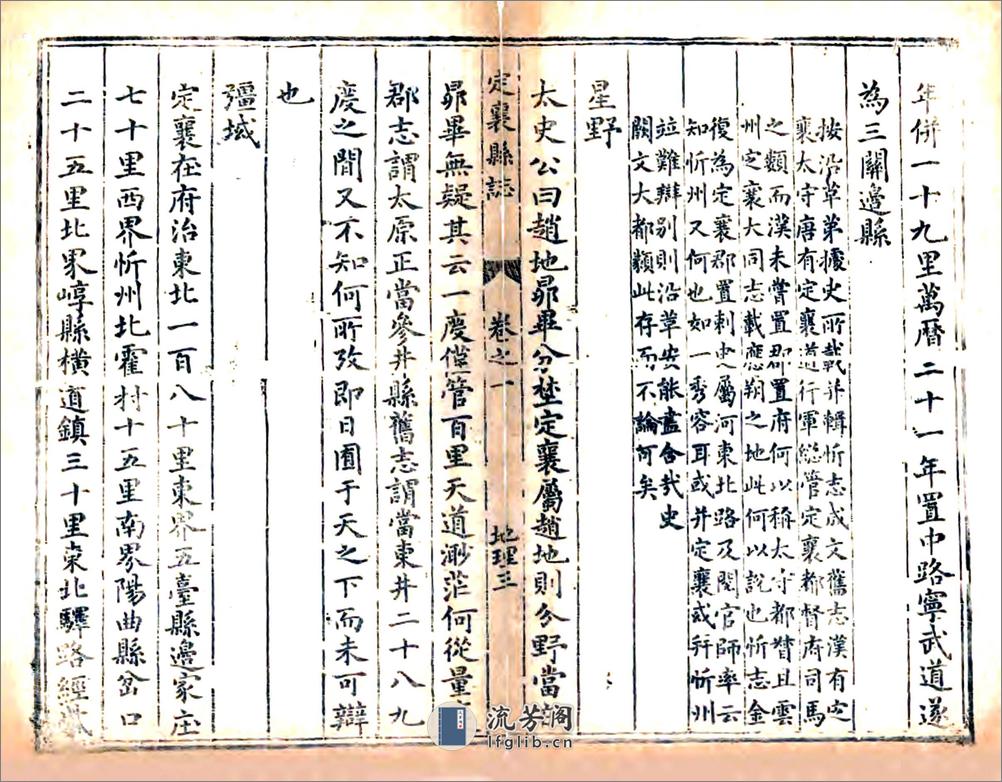 年併一十九里萬曆二十一年置中路寧武道遂
為三關邊縣
按沿革第據史所載并輯忻志成文舊志漢有定
襄太守唐有定襄道行軍總管定襄都督府司馬
之類而漢未嘗置郡置府何以稱太守都督且雲
州定襄大同志載應朔之地此何以說也忻志金
復為定襄郡置刺史屬河東北路及閱官師率云
知忻州又何也如一秀容耳或并定襄或并忻州
竝難辯別則沿革安能盡合哉史
闕文大都類此存而不論可矣
星野
太史公曰趙地昴畢分埜定襄屬趙地則分野當
定襄縣誌
卷之一
地理三
昴畢無疑其云一度僅管百里天道渺茫何從量
郡志謂太原正當參井縣舊志謂當東井二十八九
度之間又不知何所攷即日囿于天之下而未可辯
也
疆域
定襄在府治東北一百八十里東界五臺縣邊家庄
七十里西界忻州北霍村十五里南界陽曲縣岔口
二十五里北界崞縣橫道鎮三十里東北驛路經
流芳閣
lfglib.cn